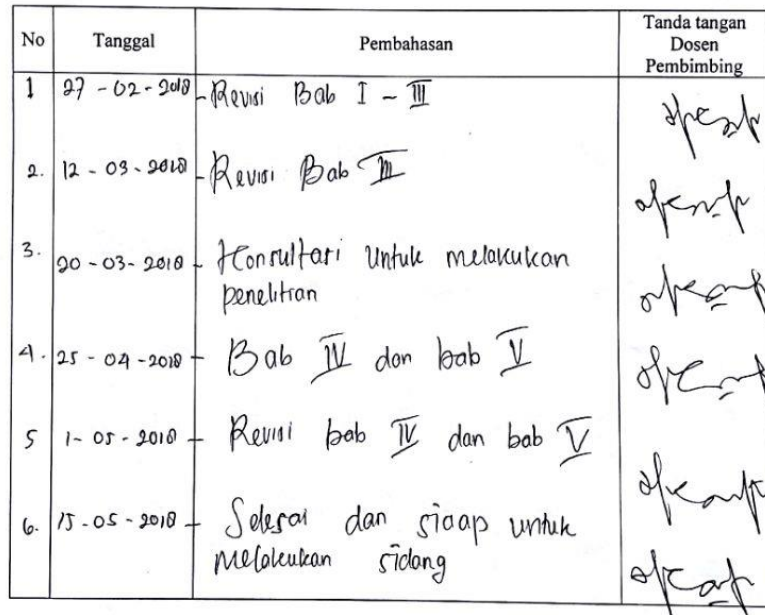 No Tanggal Pembahasan Tanda tangan
Dosen
Pembimbing
1 27 - 02 - 2018 - Revisi Bab I - III
2. 12 - 03 - 2018 - Revisi Bab III
3. 20 - 03 - 2018 - Konsultasi untuk melakukan
penelitian
4. 25 - 04 - 2018 - Bab IV dan bab V
5 1 - 05 - 2018 - Revisi bab IV dan bab V
6. 15 - 05 - 2018 - Selesai dan siaap untuk
melakukan sidang